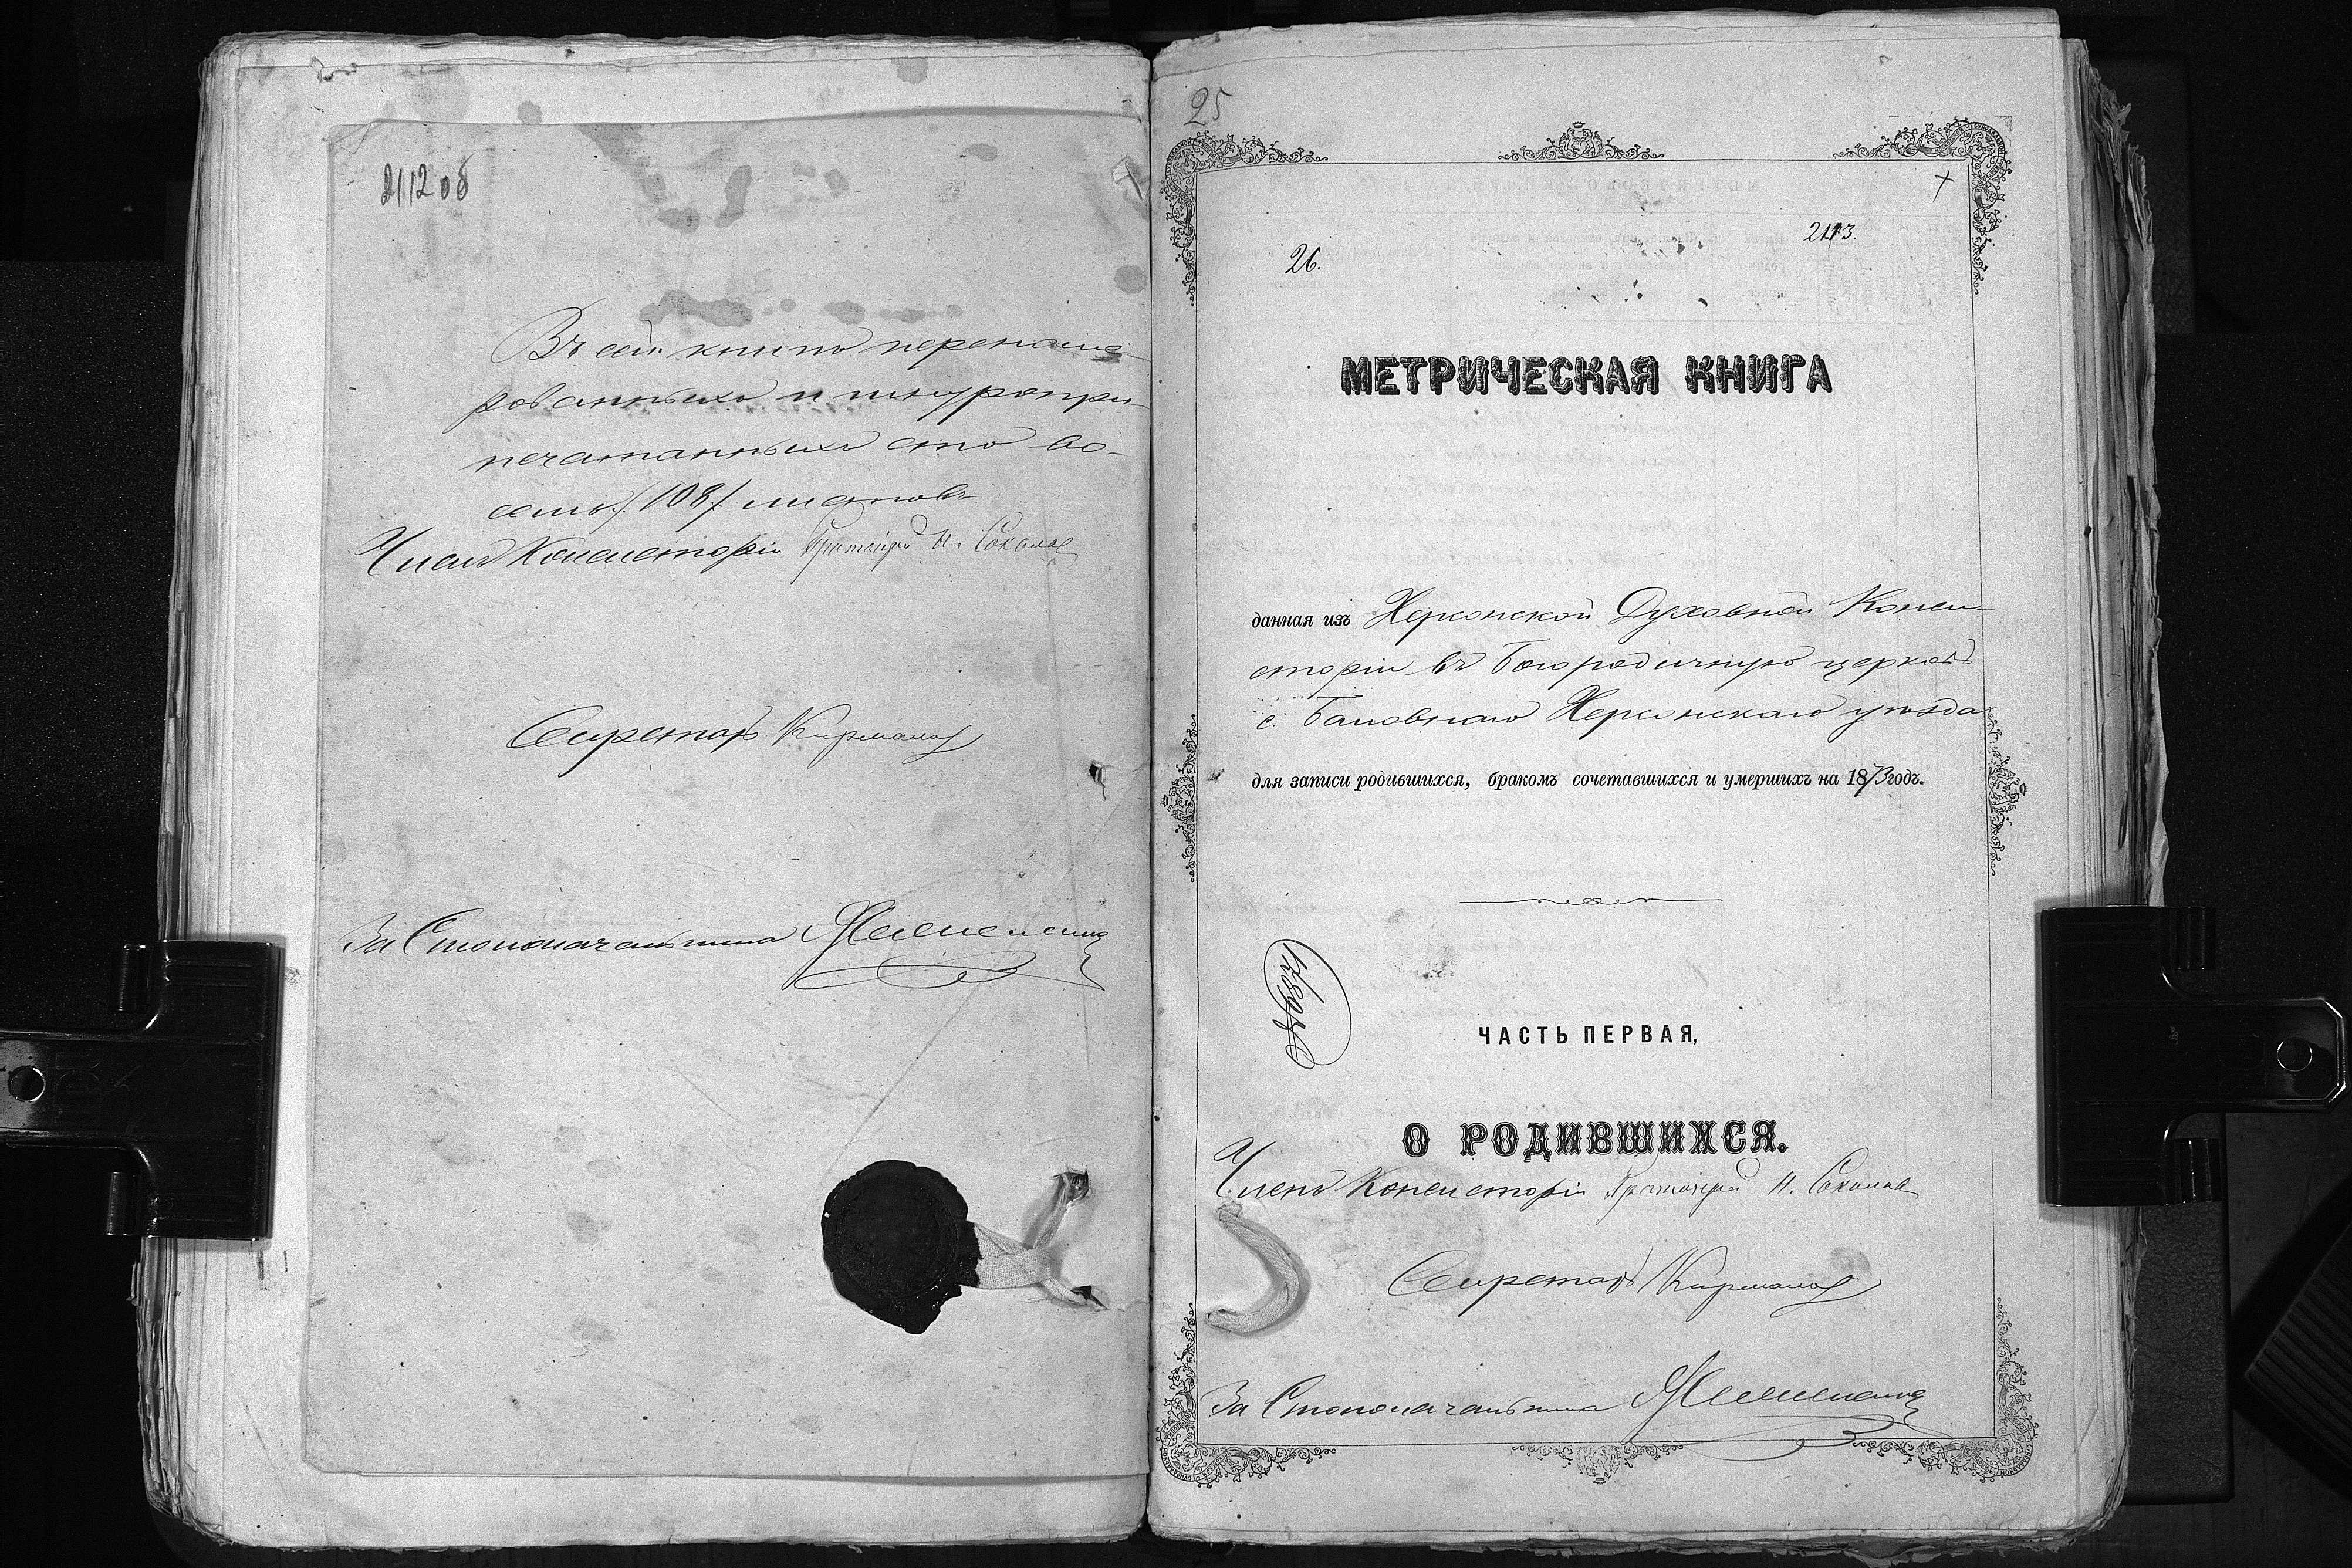 2112 об
Въ сей книгѣ перенуме-
рованныхъ и шнуропри-
печатанныхъ сто во-
семь /108/ листовъ
Членъ Консисторіи Протоіерей Н. Соколов
Секретарь
За Столоначальника
25
26.
2113.
МЕТРИЧЕСКАЯ КНИГА
данная изъ Херсонской Духовной Конси-
сторіи въ Богородичную церковь
с. Баловнаго Херсонскаго уѣзда
для записи родившихся, бракомъ сочетавшихся и умершихъ на 1873 годъ.
ЧАСТЬ ПЕРВАЯ,
О РОДИВШИХСЯ.
Членъ Консисторіи Протоіерей Н. Соколов
Секретарь
За Столоначальника